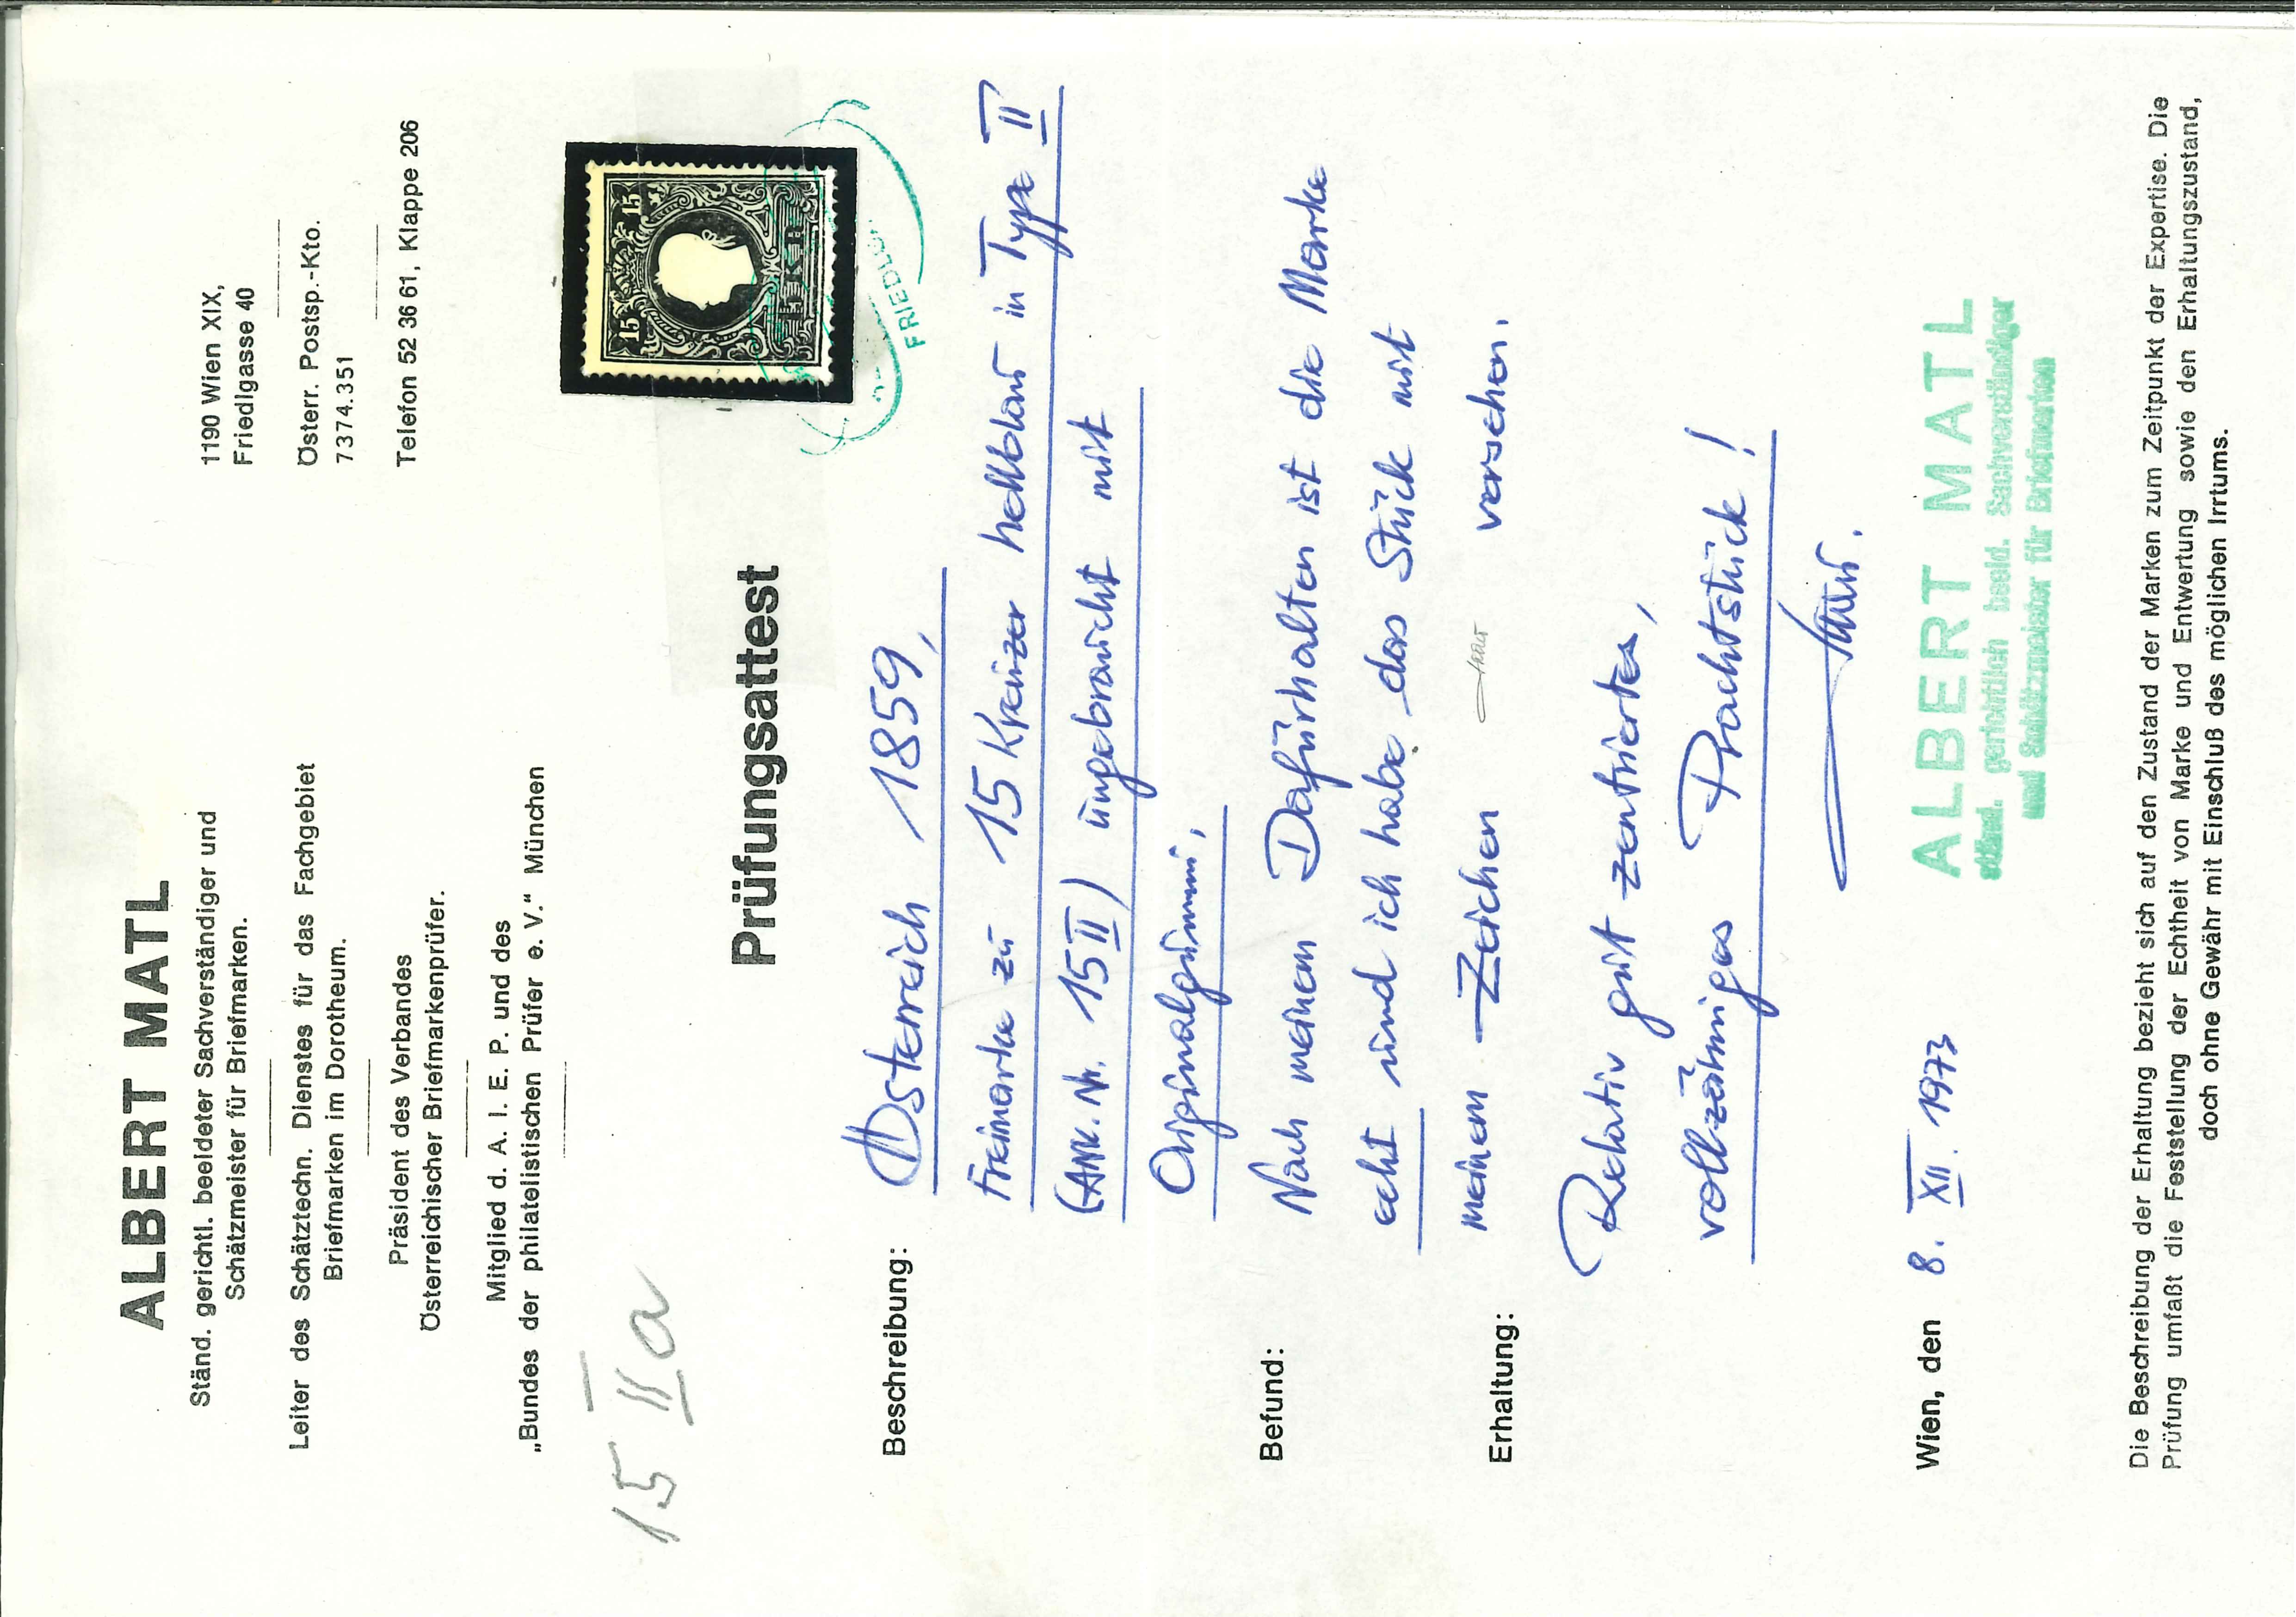 ALBERT MATL
Ständ. gerichtl. beeideter Sachverständiger und
Schätzmeister für Briefmarken.
Leiter des Schätztechn. Dienstes für das Fachgebiet
Briefmarken im Dorotheum.
Präsident des Verbandes
Österreichischer Briefmarkenprüfer.
Mitglied d. A. I. E. P. und des
„Bundes der philatelistischen Prüfer e. V." München
1190 Wien XIX,
Friedlgasse 40
Österr. Postsp.-Kto.
7374.351
Telefon 52 36 61, Klappe 206
15 II a
15 15
15 KR
FRIEDLG
Prüfungsattest
Beschreibung:
Österreich 1859,
Freimarke zu 15 Kreuzer hellblau in Type II
(ANK. Nr. 15 II) ungebraucht mit
Originalgummi,
Befund:
Nach meinem Dafürhalten ist die Marke
echt und ich habe das Stück mit
meinem Zeichen versehen.
Erhaltung:
Relativ gut zentriertes,
vollzähniges Prachtstück!
Wien, den 8. XII. 1973
ALBERT MATL
ständ. gerichtlich beeid. Sachverständiger
und Schätzmeister für Briefmarken
Die Beschreibung der Erhaltung bezieht sich auf den Zustand der Marken zum Zeitpunkt der Expertise. Die
Prüfung umfaßt die Feststellung der Echtheit von Marke und Entwertung sowie den Erhaltungszustand,
doch ohne Gewähr mit Einschluß des möglichen Irrtums.